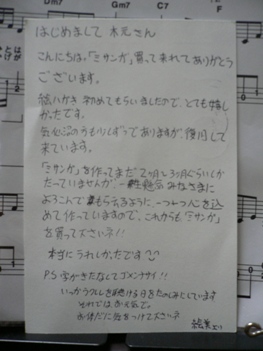 Dm7
Gm7
はじめまして 木元さん
こんにちは。「ミサンガ」買ってくれてありがとう
ございます。
絵ハガキ 初めてもらいましたので、とても嬉し
かったです。
気 のうも少しずつでありますが、復
して
来ています。
「ミサンガ」を作ってまだ2ヶ月、3ヶ月ぐらいしか
たっていませんが、みなさまに
よろこんでもらえるように 一つ一つ心を込
めて作っていますので、これからも「ミサンガ」
を買って下さいネ!!
本当にうれしかったです
P.S 字がきたなくてゴメンナサイ!!
いつかウクレレを聴ける日をたのしみにしています
それでは、お元気で。
お体だに気をつけて下さいネ